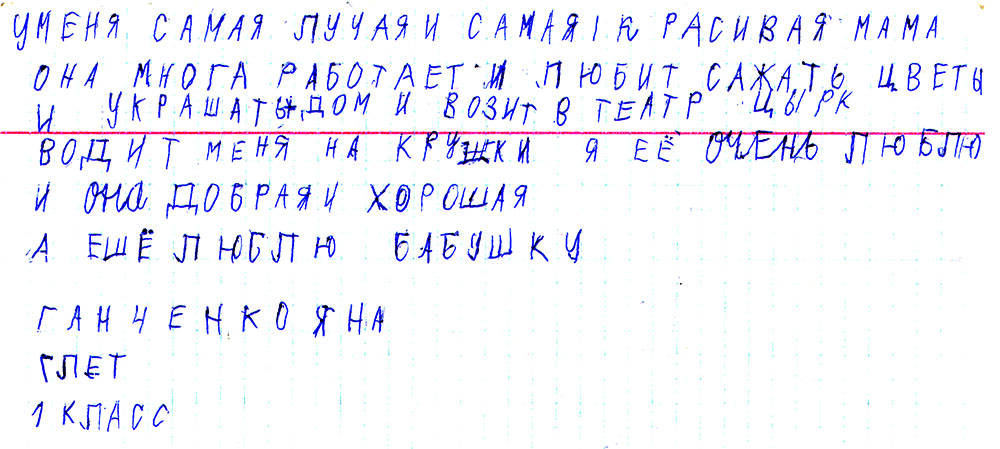 УМЕНЯ САМАЯ ЛУЧАЯИ САМАЯІК РАСИВАЯ МАМА
ОНА МНОГА РАБОТАЕТ И ЛЮБИТ САЖАТЬ ЦВЕТЫ
И УКРАШАТЬ ДОМ И ВОЗИТ В ТЕАТР ЦЫРК
ВОДИТ МЕНЯ НА КРУЖКИ Я ЕЁ ОЧЕНЬ ЛЮБЛЮ
И ОНА ДОБРАЯИ ХОРОШАЯ
А ЕШЁ ЛЮБЛЮ БАБУШКУ
ГАНЧЕНКО ЯНА
7 ЛЕТ
1 КЛАСС